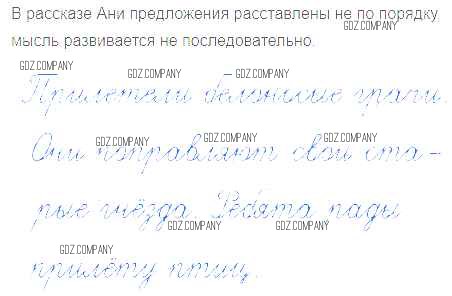 В рассказе Ани предложения расставлены не по порядку
GDZ.COMPANY
мысль развивается не последовательно.
GDZ.COMPANY GDZ.COMPANY GDZ.COMPANY
Прилетели белоносые грачи.
GDZ.COMPANY GDZ.COMPANY GDZ.COMPANY
Они поправляют свои ста-
рые гнёзда. Ребята рады
GDZ.COMPANY GDZ.COMPANY
GDZ.COMPANY
прилёту птиц.